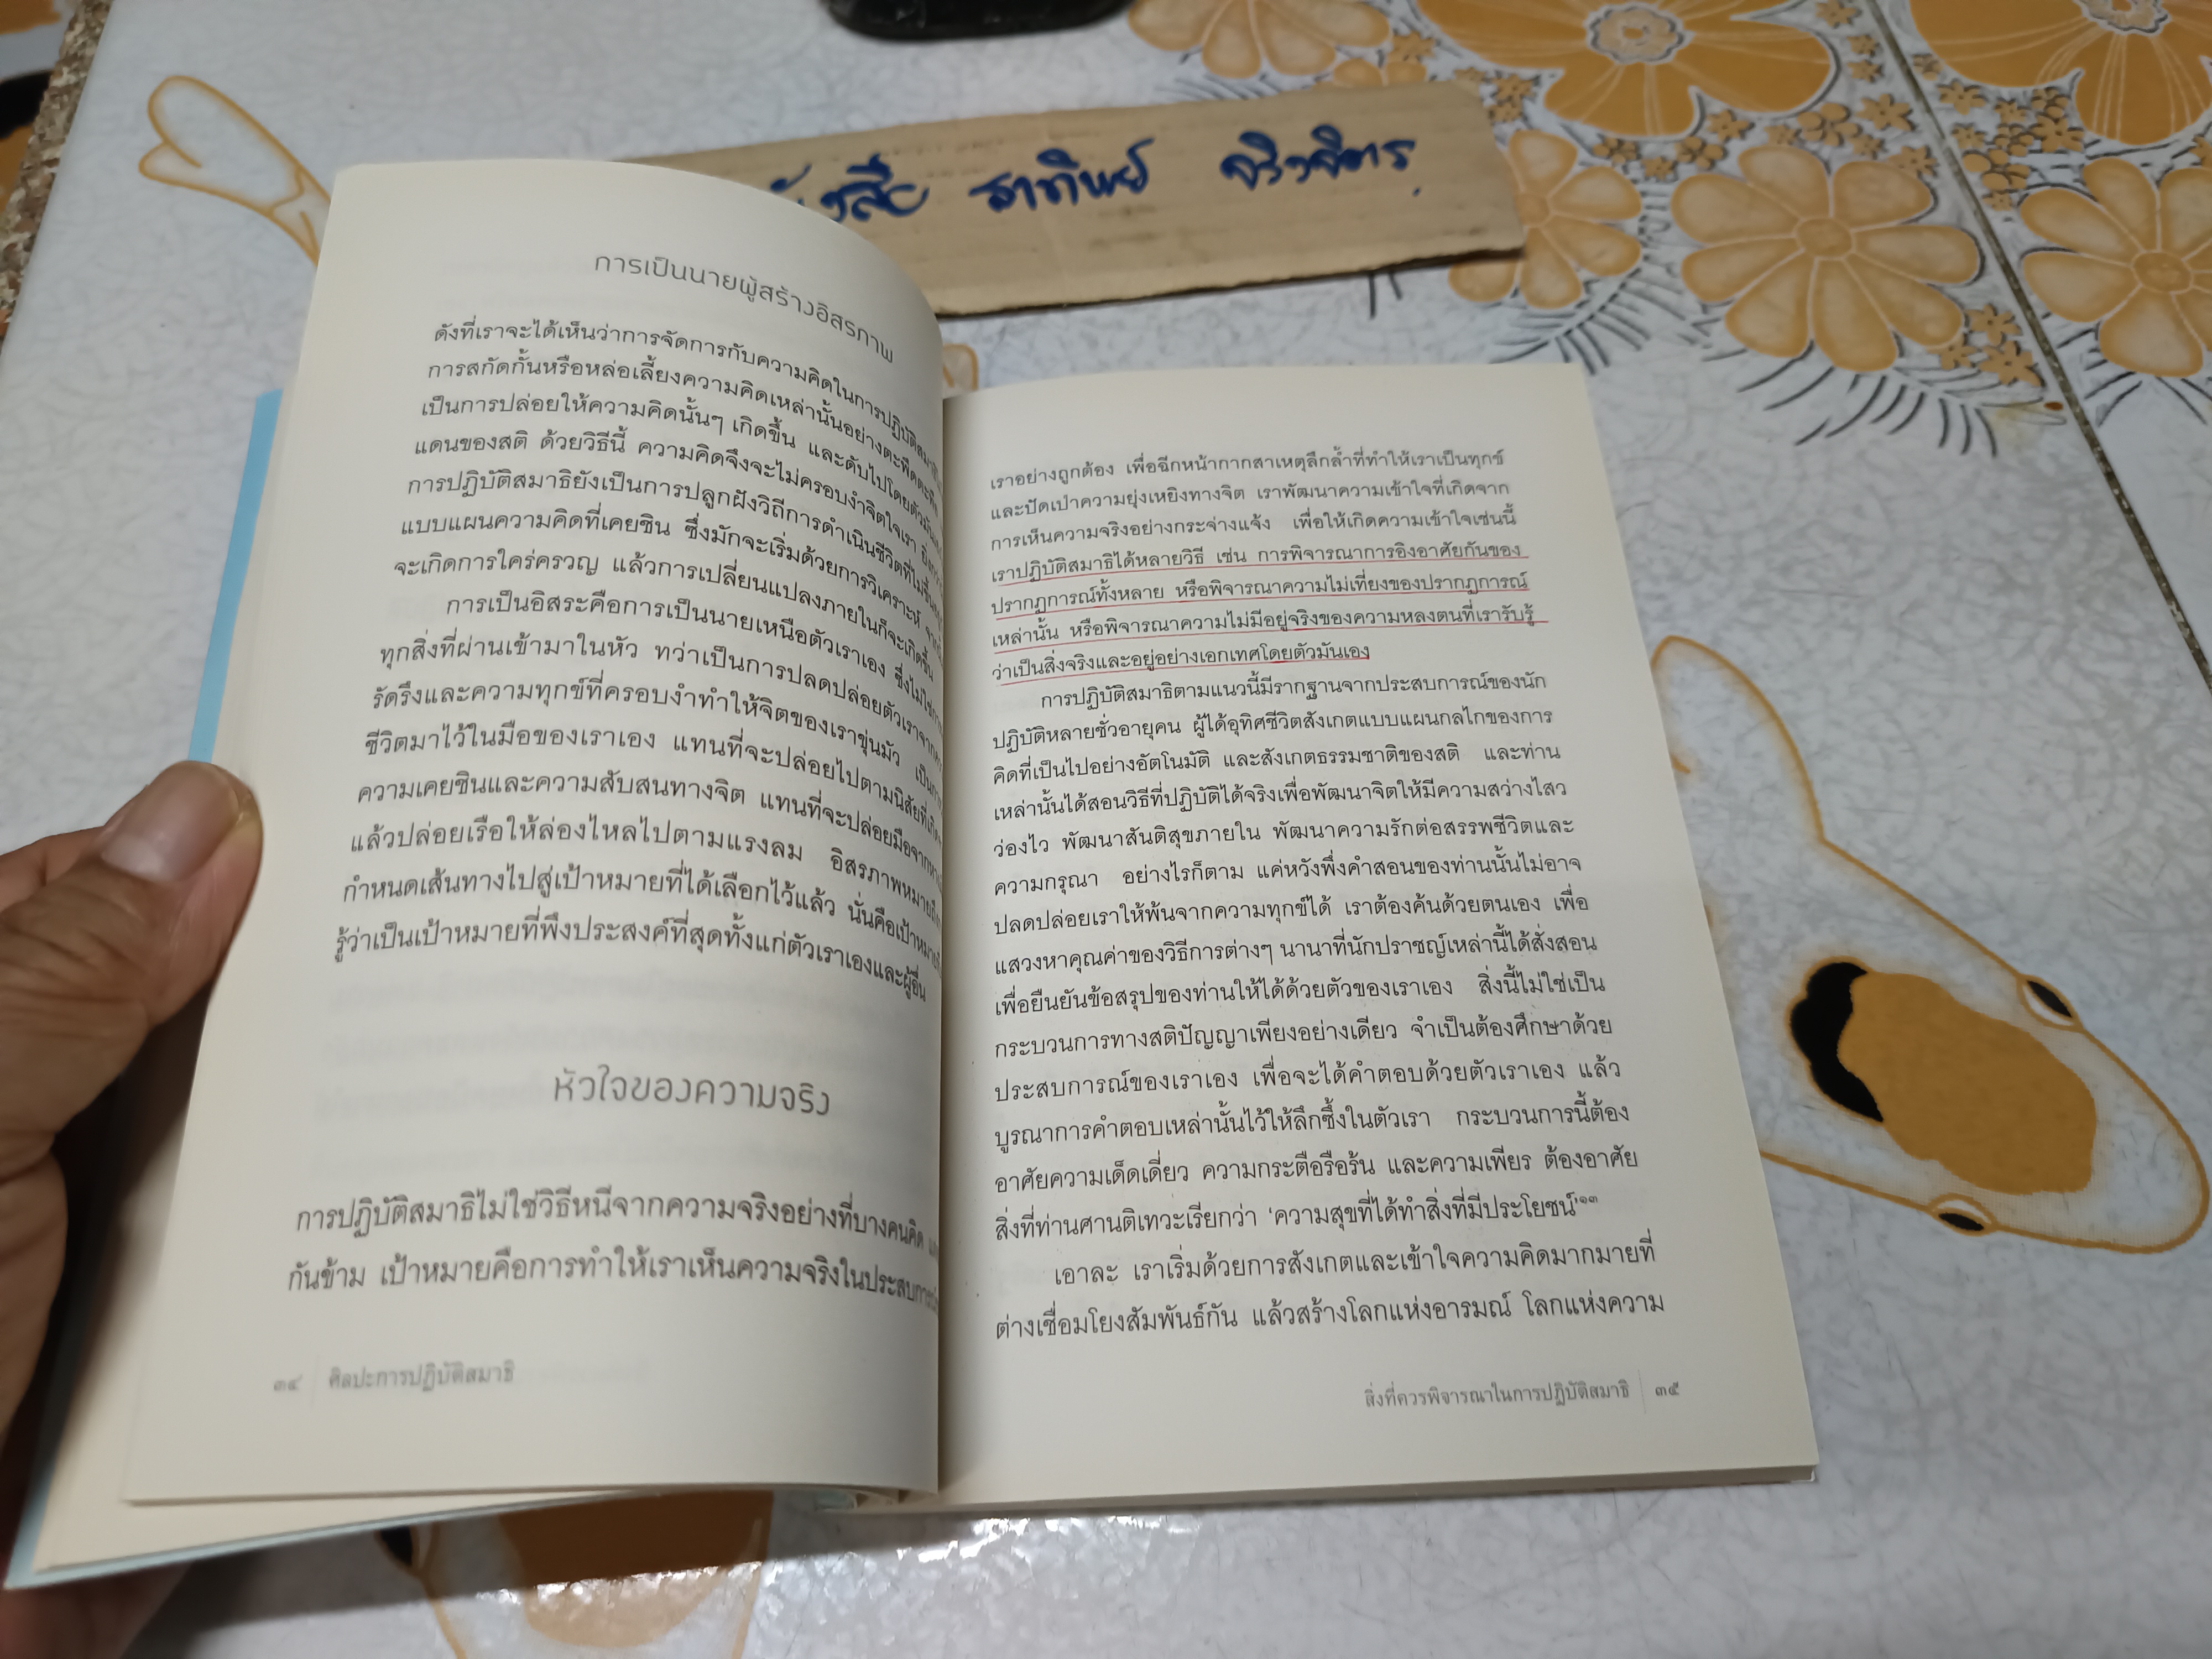 ังสือ ธาทิพย์ จริงจิตร
การเป็นนายผู้สร้างอิสรภาพ
ดังที่เราจะได้เห็นว่าการจัดการกับความคิดในการปฏิบัติสมาธิ
การสกัดกั้นหรือหล่อเลี้ยงความคิดเหล่านั้นอย่างตะพึดตะพือ
เป็นการปล่อยให้ความคิดนั้นๆ เกิดขึ้น และดับไปโดยตัวมันเอง
แดนของสติ ด้วยวิธีนี้ ความคิดจึงจะไม่ครอบงำจิตใจเรา
การปฏิบัติสมาธิยังเป็นการปลูกฝังวิถีการดำเนินชีวิตที่ไม่ขึ้น
แบบแผนความคิดที่เคยชิน ซึ่งมักจะเริ่มด้วยการวิเคราะห์
จะเกิดการใคร่ครวญ แล้วการเปลี่ยนแปลงภายในก็จะเกิดขึ้น
การเป็นอิสระคือการเป็นนายเหนือตัวเราเอง ซึ่งไม่ใช่การ
ทุกสิ่งที่ผ่านเข้ามาในหัว ทว่าเป็นการปลดปล่อยตัวเราจาก
รัดรึงและความทุกข์ที่ครอบงำทำให้จิตของเราขุ่นมัว เป็นการ
ชีวิตมาไว้ในมือของเราเอง แทนที่จะปล่อยไปตามนิสัยที่เกิด
ความเคยชินและความสับสนทางจิต แทนที่จะปล่อยมือจาก
แล้วปล่อยเรือให้ล่องไหลไปตามแรงลม อิสรภาพหมายถึง
กำหนดเส้นทางไปสู่เป้าหมายที่ได้เลือกไว้แล้ว นั่นคือเป้าหมาย
รู้ว่าเป็นเป้าหมายที่พึงประสงค์ที่สุดทั้งแก่ตัวเราเองและผู้อื่น
หัวใจของความจริง
การปฏิบัติสมาธิไม่ใช่วิธีหนีจากความจริงอย่างที่บางคนคิด
กันข้าม เป้าหมายคือการทำให้เราเห็นความจริงในประสบการณ์
๓๔ ศิลปะการปฏิบัติสมาธิ
เราอย่างถูกต้อง เพื่อฉีกหน้ากากสาเหตุลึกล้ำที่ทำให้เราเป็นทุกข์
และปัดเป่าความยุ่งเหยิงทางจิต เราพัฒนาความเข้าใจที่เกิดจาก
การเห็นความจริงอย่างกระจ่างแจ้ง เพื่อให้เกิดความเข้าใจเช่นนี้
เราปฏิบัติสมาธิได้หลายวิธี เช่น การพิจารณาการอิงอาศัยกันของ
ปรากฏการณ์ทั้งหลาย หรือพิจารณาความไม่เที่ยงของปรากฏการณ์
เหล่านั้น หรือพิจารณาความไม่มีอยู่จริงของความหลงตนที่เรารับรู้
ว่าเป็นสิ่งจริงและอยู่อย่างเอกเทศโดยตัวมันเอง
การปฏิบัติสมาธิตามแนวนี้มีรากฐานจากประสบการณ์ของนัก
ปฏิบัติหลายชั่วอายุคน ผู้ได้อุทิศชีวิตสังเกตแบบแผนกลไกของการ
คิดที่เป็นไปอย่างอัตโนมัติ และสังเกตธรรมชาติของสติ และท่าน
เหล่านั้นได้สอนวิธีที่ปฏิบัติได้จริงเพื่อพัฒนาจิตให้มีความสว่างไสว
ว่องไว พัฒนาสันติสุขภายใน พัฒนาความรักต่อสรรพชีวิตและ
ความกรุณา อย่างไรก็ตาม แค่หวังพึ่งคำสอนของท่านนั้นไม่อาจ
ปลดปล่อยเราให้พ้นจากความทุกข์ได้ เราต้องค้นด้วยตนเอง เพื่อ
แสวงหาคุณค่าของวิธีการต่างๆ นานาที่นักปราชญ์เหล่านี้ได้สั่งสอน
เพื่อยืนยันข้อสรุปของท่านให้ได้ด้วยตัวของเราเอง สิ่งนี้ไม่ใช่เป็น
กระบวนการทางสติปัญญาเพียงอย่างเดียว จำเป็นต้องศึกษาด้วย
ประสบการณ์ของเราเอง เพื่อจะได้คำตอบด้วยตัวเราเอง แล้ว
บูรณาการคำตอบเหล่านั้นไว้ให้ลึกซึ้งในตัวเรา กระบวนการนี้ต้อง
อาศัยความเด็ดเดี่ยว ความกระตือรือร้น และความเพียร ต้องอาศัย
สิ่งที่ท่านศานติเทวะเรียกว่า ‘ความสุขที่ได้ทำสิ่งที่มีประโยชน์’๑๓
เอาละ เราเริ่มด้วยการสังเกตและเข้าใจความคิดมากมายที่
ต่างเชื่อมโยงสัมพันธ์กัน แล้วสร้างโลกแห่งอารมณ์ โลกแห่งความ
สิ่งที่ควรพิจารณาในการปฏิบัติสมาธิ ๓๕